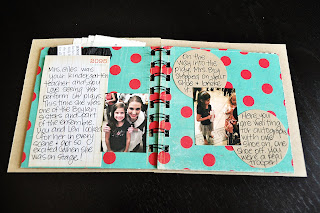 Mrs. Giles was
your kindergarten
teacher and you
love seeing her
perform in plays.
This time she was
one of the Boylan
sisters and part
of the ensemble.
You and Lexi looked
for her in every
scene & got so
excited when she
was on stage!
On the
way into the
play, Mrs. Boy
stepped on your
shoe & broke
Here you
are waiting
for autographs
with one
shoe on, one
shoe off. You
were a real
trooper!